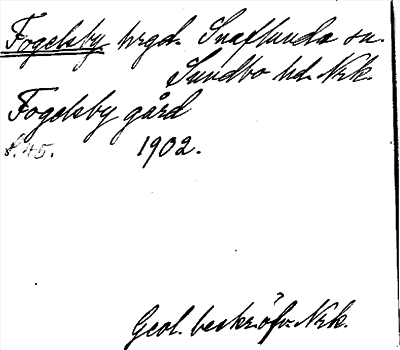 Fogelsby hrgd. Snaflunda sn.
Sundbo hd. Nrk.
Fogelsby gård
s. 45. 1902.
Geol. beskr. öfv. Nrk.